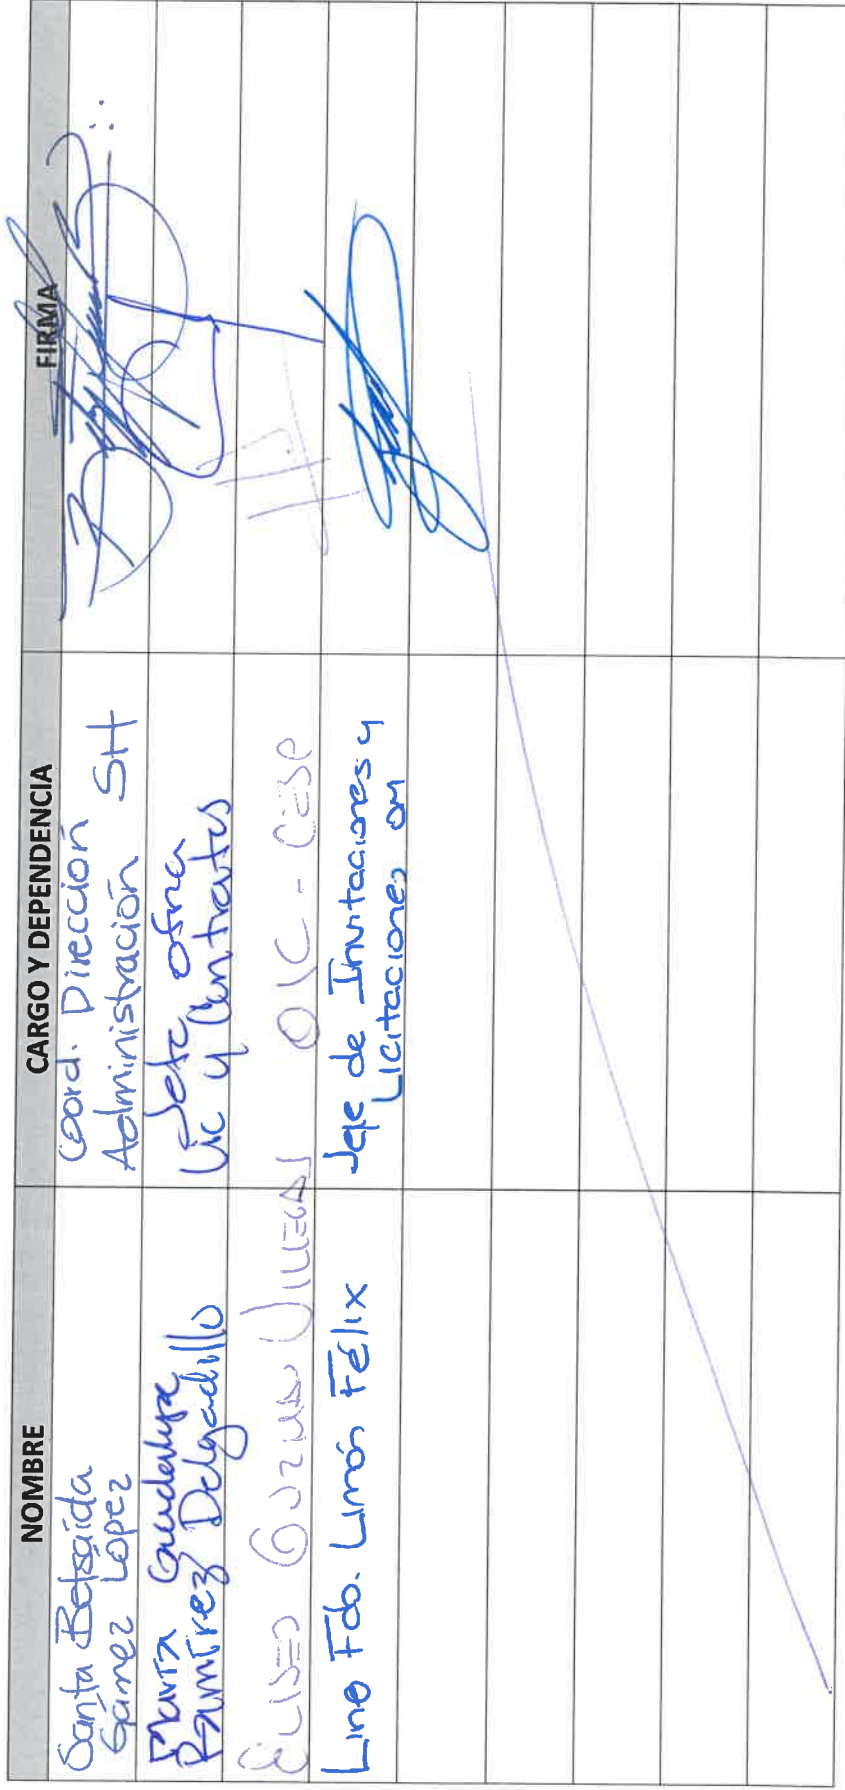 NOMBRE	CARGO Y DEPENDENCIA	FIRMA
Santa Betsaida
Gámez López
Coord. Dirección
Administración SH
María Guadalupe
Ramírez Delgadillo
Jefa Ofna
Lic y Contratos
Eliseo Guzmán Villegas
OIC - CESP
Lino Fdo. Limón Félix
Jefe de Invitaciones y
Licitaciones OM